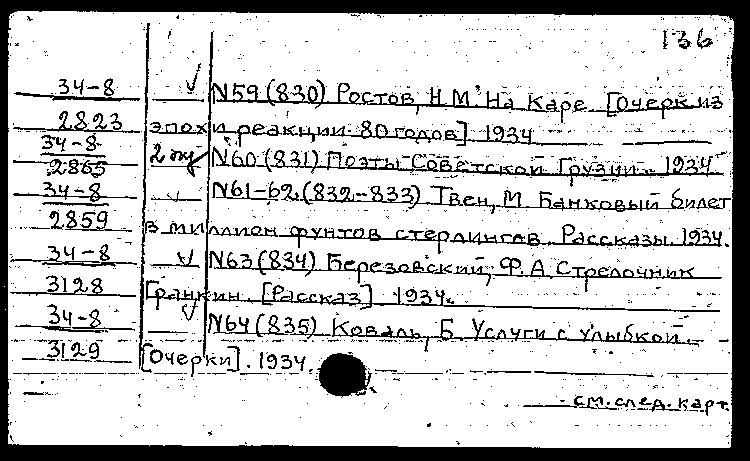 136
34-8 N59(830) Ростов, Н.М. На Каре. [Очерк из
2823 эпохи реакции 80 годов]. 1934
34-8
2865 2 экз N60(831) Поэты Советской Грузии. 1934
34-8 N61-62(832-833) Твен, М. Банковый билет
2859 в миллион фунтов стерлингов. Рассказы. 1934.
34-8 N63(834) Березовский, Ф.А. Стрелочник
3128 Гранкин. [Рассказ]. 1934.
34-8 N64(835) Коваль, Б. Услуги с улыбкой.
3129 [Очерки]. 1934.
см. след. карт.